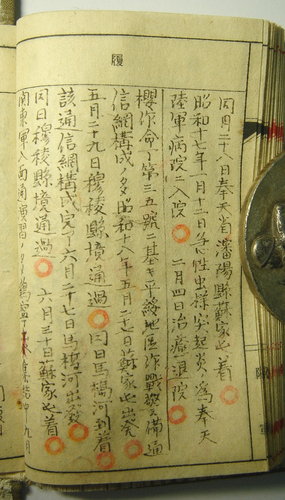 履
同月二十八日奉天省瀋陽縣蘇家屯着
昭和十七年一月十二日急性虫様突起炎ノ為奉天
陸軍病院ニ入院 二月四日治癒退院
櫻作命第三五號ニ基キ平綏地區作戰警備通
信網構成ノタメ昭和十八年五月二十七日蘇家屯出発
五月二十九日穆稜縣境通過 同日馬橋河到着
該通信網構成完了六月二十七日馬橋河出発
同日穆稜縣境通過 六月三十日蘇家屯着
関東軍